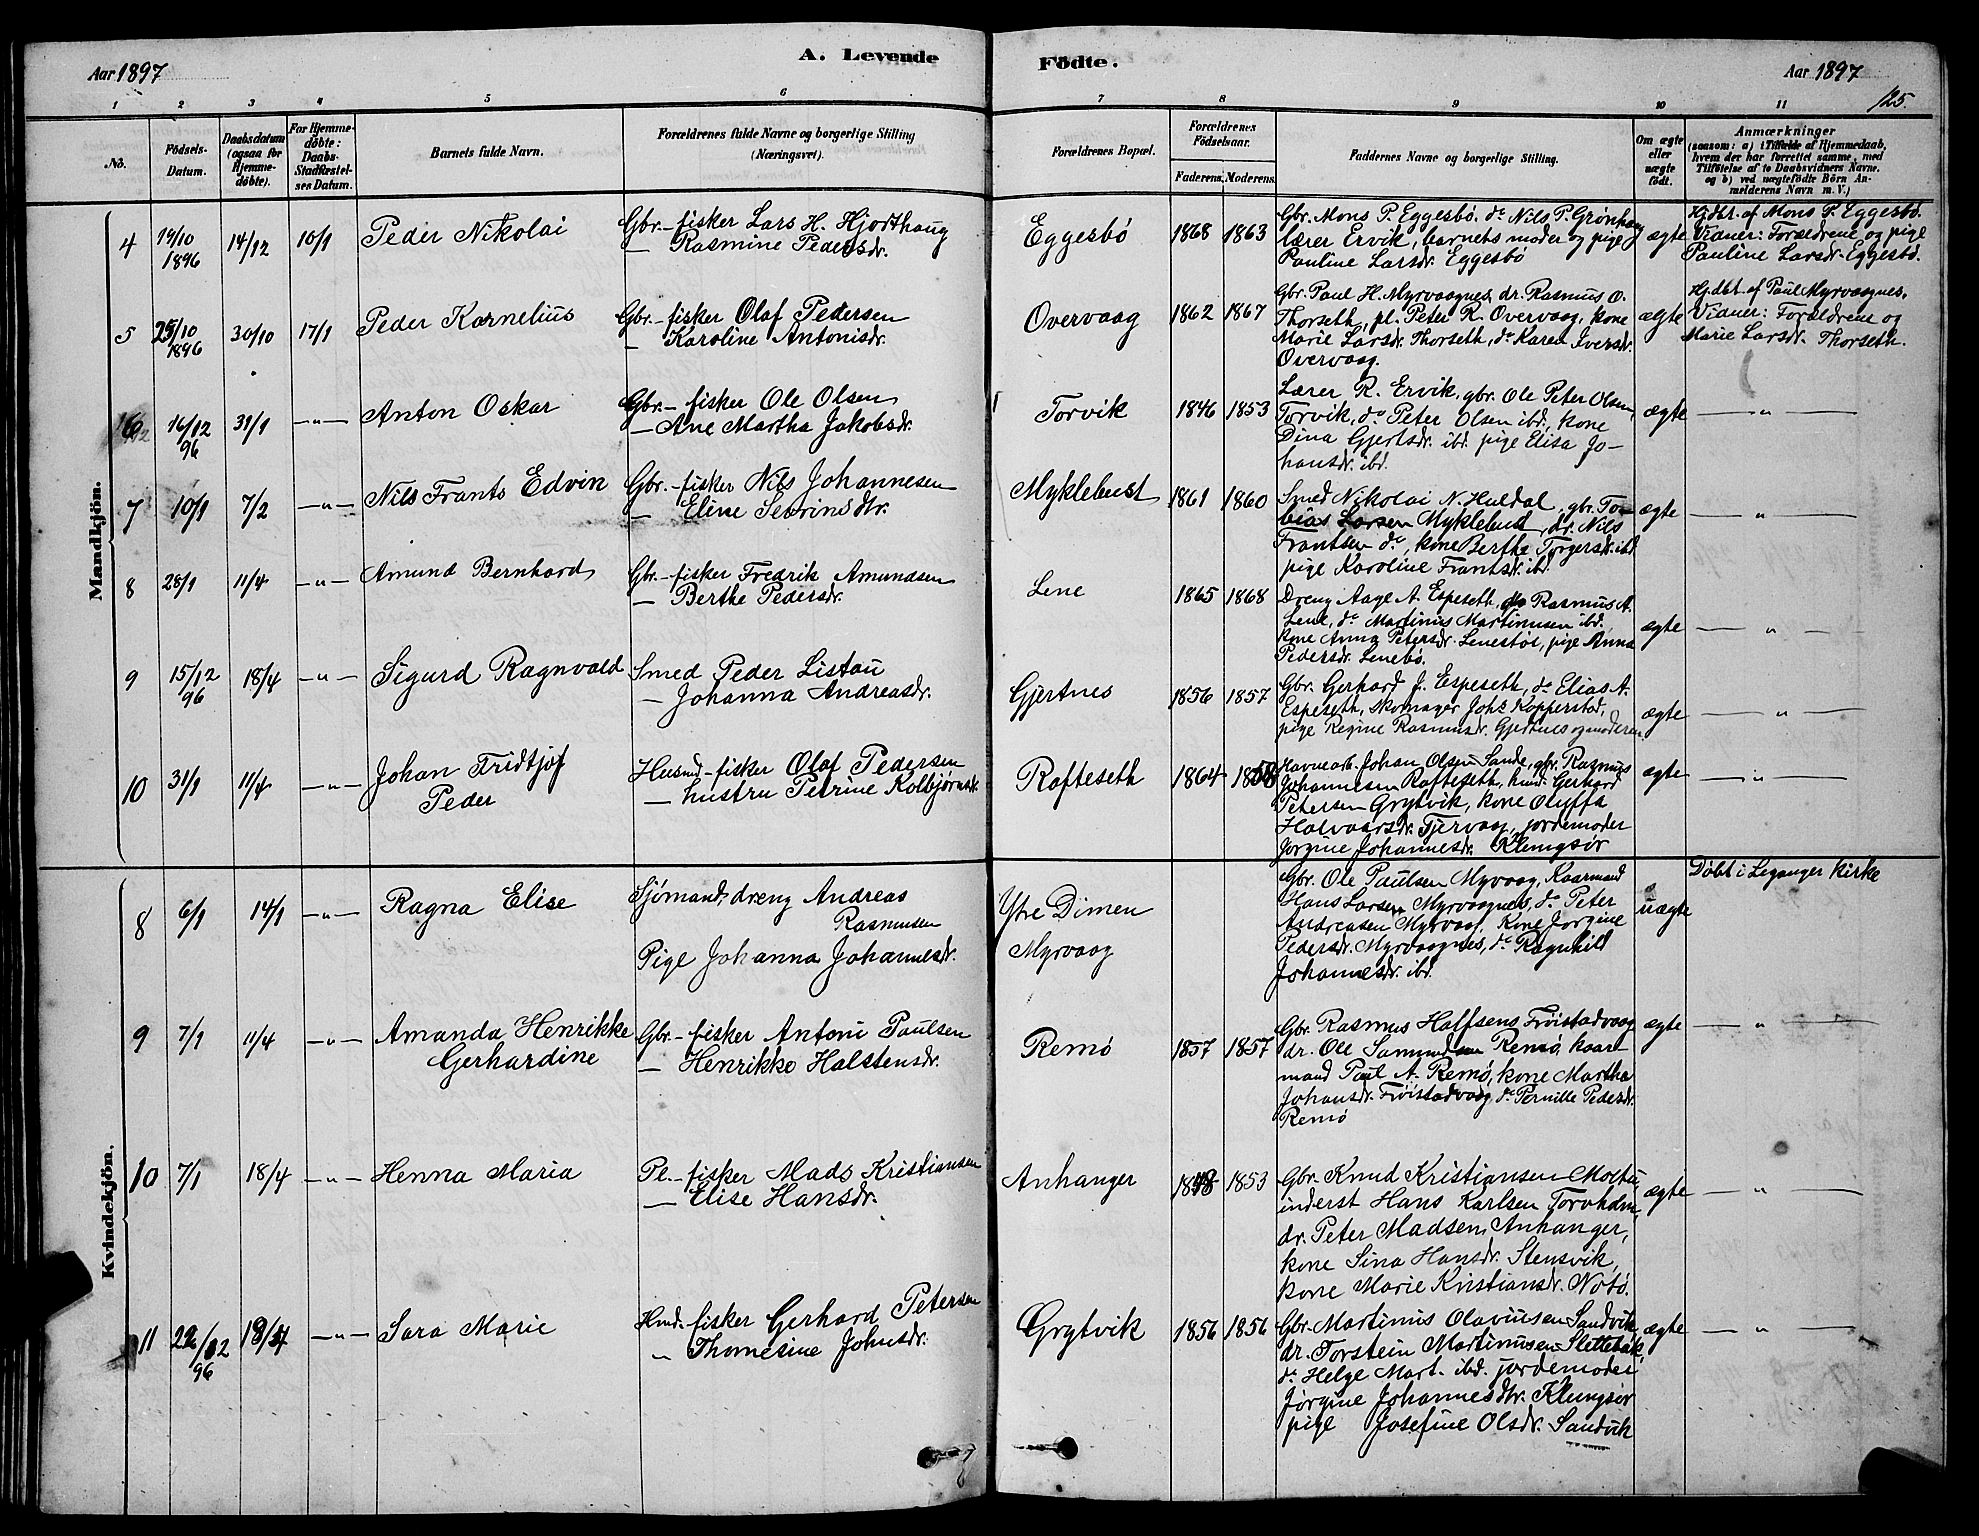 Aar 1897
A. Levende
Födte.
Aar 1897
125.
1 2 3 4 5 6 7 8 9 10 11
No.
Födsels-
Datum.
Daabsdatum
(ogsaa for
Hjemme-
döbte).
For Hjemme-
döbte:
Daabs-
Stadfæstel-
ses Datum.
Barnets fulde Navn.
Forældrenes fulde Navne og borgerlige Stilling
(Næringsvei).
Forældrenes Bopæl.
Forældrenes
Födselsaar.
Faderens. Moderens.
Faddernes Navne og borgerlige Stilling.
Om ægte
eller
uægte
födt.
Anmærkninger
(saasom: a) i Tilfælde af Hjemmedaab,
hvem der har forrettet samme, med
Tilföielse af to Daabsvidners Navne.
og b) ved uægtefödte Börn An-
melderens Navn m. V.)
Mandkjön.
4 14/10 1896 14/12 10/1 Peder Nikolai
Gbr.- fisker Lars H. Hjorthaug
— Rasmine Pedersdr.
Eggesbö 1868 1863
Gbr. Mons P. Eggesbö, do Nils P. Grönhaug
lærer Ervik, barnets moder og pige
Pauline Larsdr. Eggesbö
ægte
Hjdbt. af Mons P. Eggesbö.
Vidner: Forældrene og pige
Pauline Larsdr. Eggesbö.
5 25/10 1896 30/10 17/1 Peder Kornelius
Gbr.- fisker Olaf Pedersen
— Karoline Antonisdr.
Overvaag 1862 1867
Gbr. Paul H. Myrvaagnes, dr. Rasmus O.
Thorseth, pl. Peter R. Overvaag, kone
Marie Larsdr. Thorseth, do Karen Iversdr.
Overvaag.
ægte
Hjdbt. af Paul Myrvaagnes.
Vidner: Forældrene og
Marie Larsdr. Thorseth.
6 16/12 96 31/1 —„— Anton Oskar
Gbr.- fisker Ole Olsen
— Ane Martha Jakobsdr.
Torvik 1846 1853
Lærer R. Ervik, gbr. Ole Peter Olsen
Torvik, do Peter Olsen ibd., kone
Dina Gjertsdr. ibd. pige Elisa Jo-
hansdr. ibd.
ægte — „ —
7 10/1 7/2 —„— Nils Frants Edvin
Gbr.- fisker Nils Johannesen
— Eline Sevrinsdtr.
Myklebust 1861 1860
Smed Nikolai N. Huldal, gbr. To-
bias Larsen Myklebust, dr. Nils
Frantsen do, kone Berthe Torgersdr. ibd
pige Karoline Frantsdr. ibd.
ægte — „ —
8 28/1 11/4 —„— Amund Bernhard
Gbr.- fisker Fredrik Amundsen
— Berthe Pedersdr.
Lene 1865 1868
Dreng Aage A. Espeseth, do Rasmus A.
Lene, do Martinus Martinusen ibd.
kone Anna Petersdr. Lenestöl, pige Anna
Pedersdr. Lenebö.
ægte — „ —
9 15/12 96 18/4 —„— Sigurd Ragnvald
Smed Peder Listau
— Johanna Andreasdr.
Gjertnes 1856 1857
Gbr. Gerhard J. Espeseth, do Elias A.
Espeseth, Skomager Johs Kopperstad,
pige Regine Rasmusdr. Gjertnes og moderen
ægte — „ —
10 31/1 11/4 —„— Johan Fridtjof
Peder
Husmd.- fisker Olaf Pedersen
— hustru Petrine Kolbjörnsdr.
Rafteseth 1864 1858
Havnearb. Johan Olsen Sande, gbr. Rasmus
Johannesen Rafteseth, husmd. Gerhard
Petersen Grytvik, kone Oluffa
Halvaarsdr. Tjervaag, jordemoder
Jörgine Johannesdr. Klungsör
ægte — „ —
Kvindekjön.
8 6/1 14/1 —„— Ragna Elise
Sjömand. dreng Andreas
Rasmusen
Pige Johanna Johannesdr.
Ytre Dimen
Myrvaag
Gbr. Ole Paulsen Myrvaag, Kaarmand
Hans Larsen Myrvaagnes, do Peter
Andreasen Myrvaag, Kone Jörgine
Pedersdr. Myrvaagnes, do Ragnhild
Johannesdr. ibd.
uægte
Döbt i Leganger kirke
9 7/1 11/4 —„— Amanda Henrikke
Gerhardine
Gbr.- fisker Antoni Paulsen
— Henrikke Halstensdr.
Remö 1857 1857
Gbr. Rasmus Halfsens Fröistadvaag
dr. Ole Samundsen Remö, kaar-
mand Paul A. Remö, kone Martha
Johansdr. Fröistadvaag, do Pernille Pedersdr.
Remö
ægte — „ —
10 7/1 18/4 —„— Henna Maria
Pl.- fisker Mads Kristiansen
— Elise Hansdr.
Anhanger 1848 1853
Gbr. Knud Kristiansen Moltu
inderst Hans Karlsen Torvholm,
dr. Peter Madsen Anhanger,
kone Sina Hansdr. Stensvik,
kone Marie Kristiansdr. Notö.
ægte — „ —
11 22/12 96 19/4 —„— Sara Marie
Hmd.- fisker Gerhard Petersen
„ Thomesine Johnsdr.
Grytvik 1856 1856
Gbr. Martinus Olaviusen Sandvik,
dr. Torstein Martinusen Slettebak,
do Helge Mart. ibd. jordemoder
Jörgine Johannesdtr. Klungsör
pige Josefine Olsdr. Sandvik
ægte — „ —